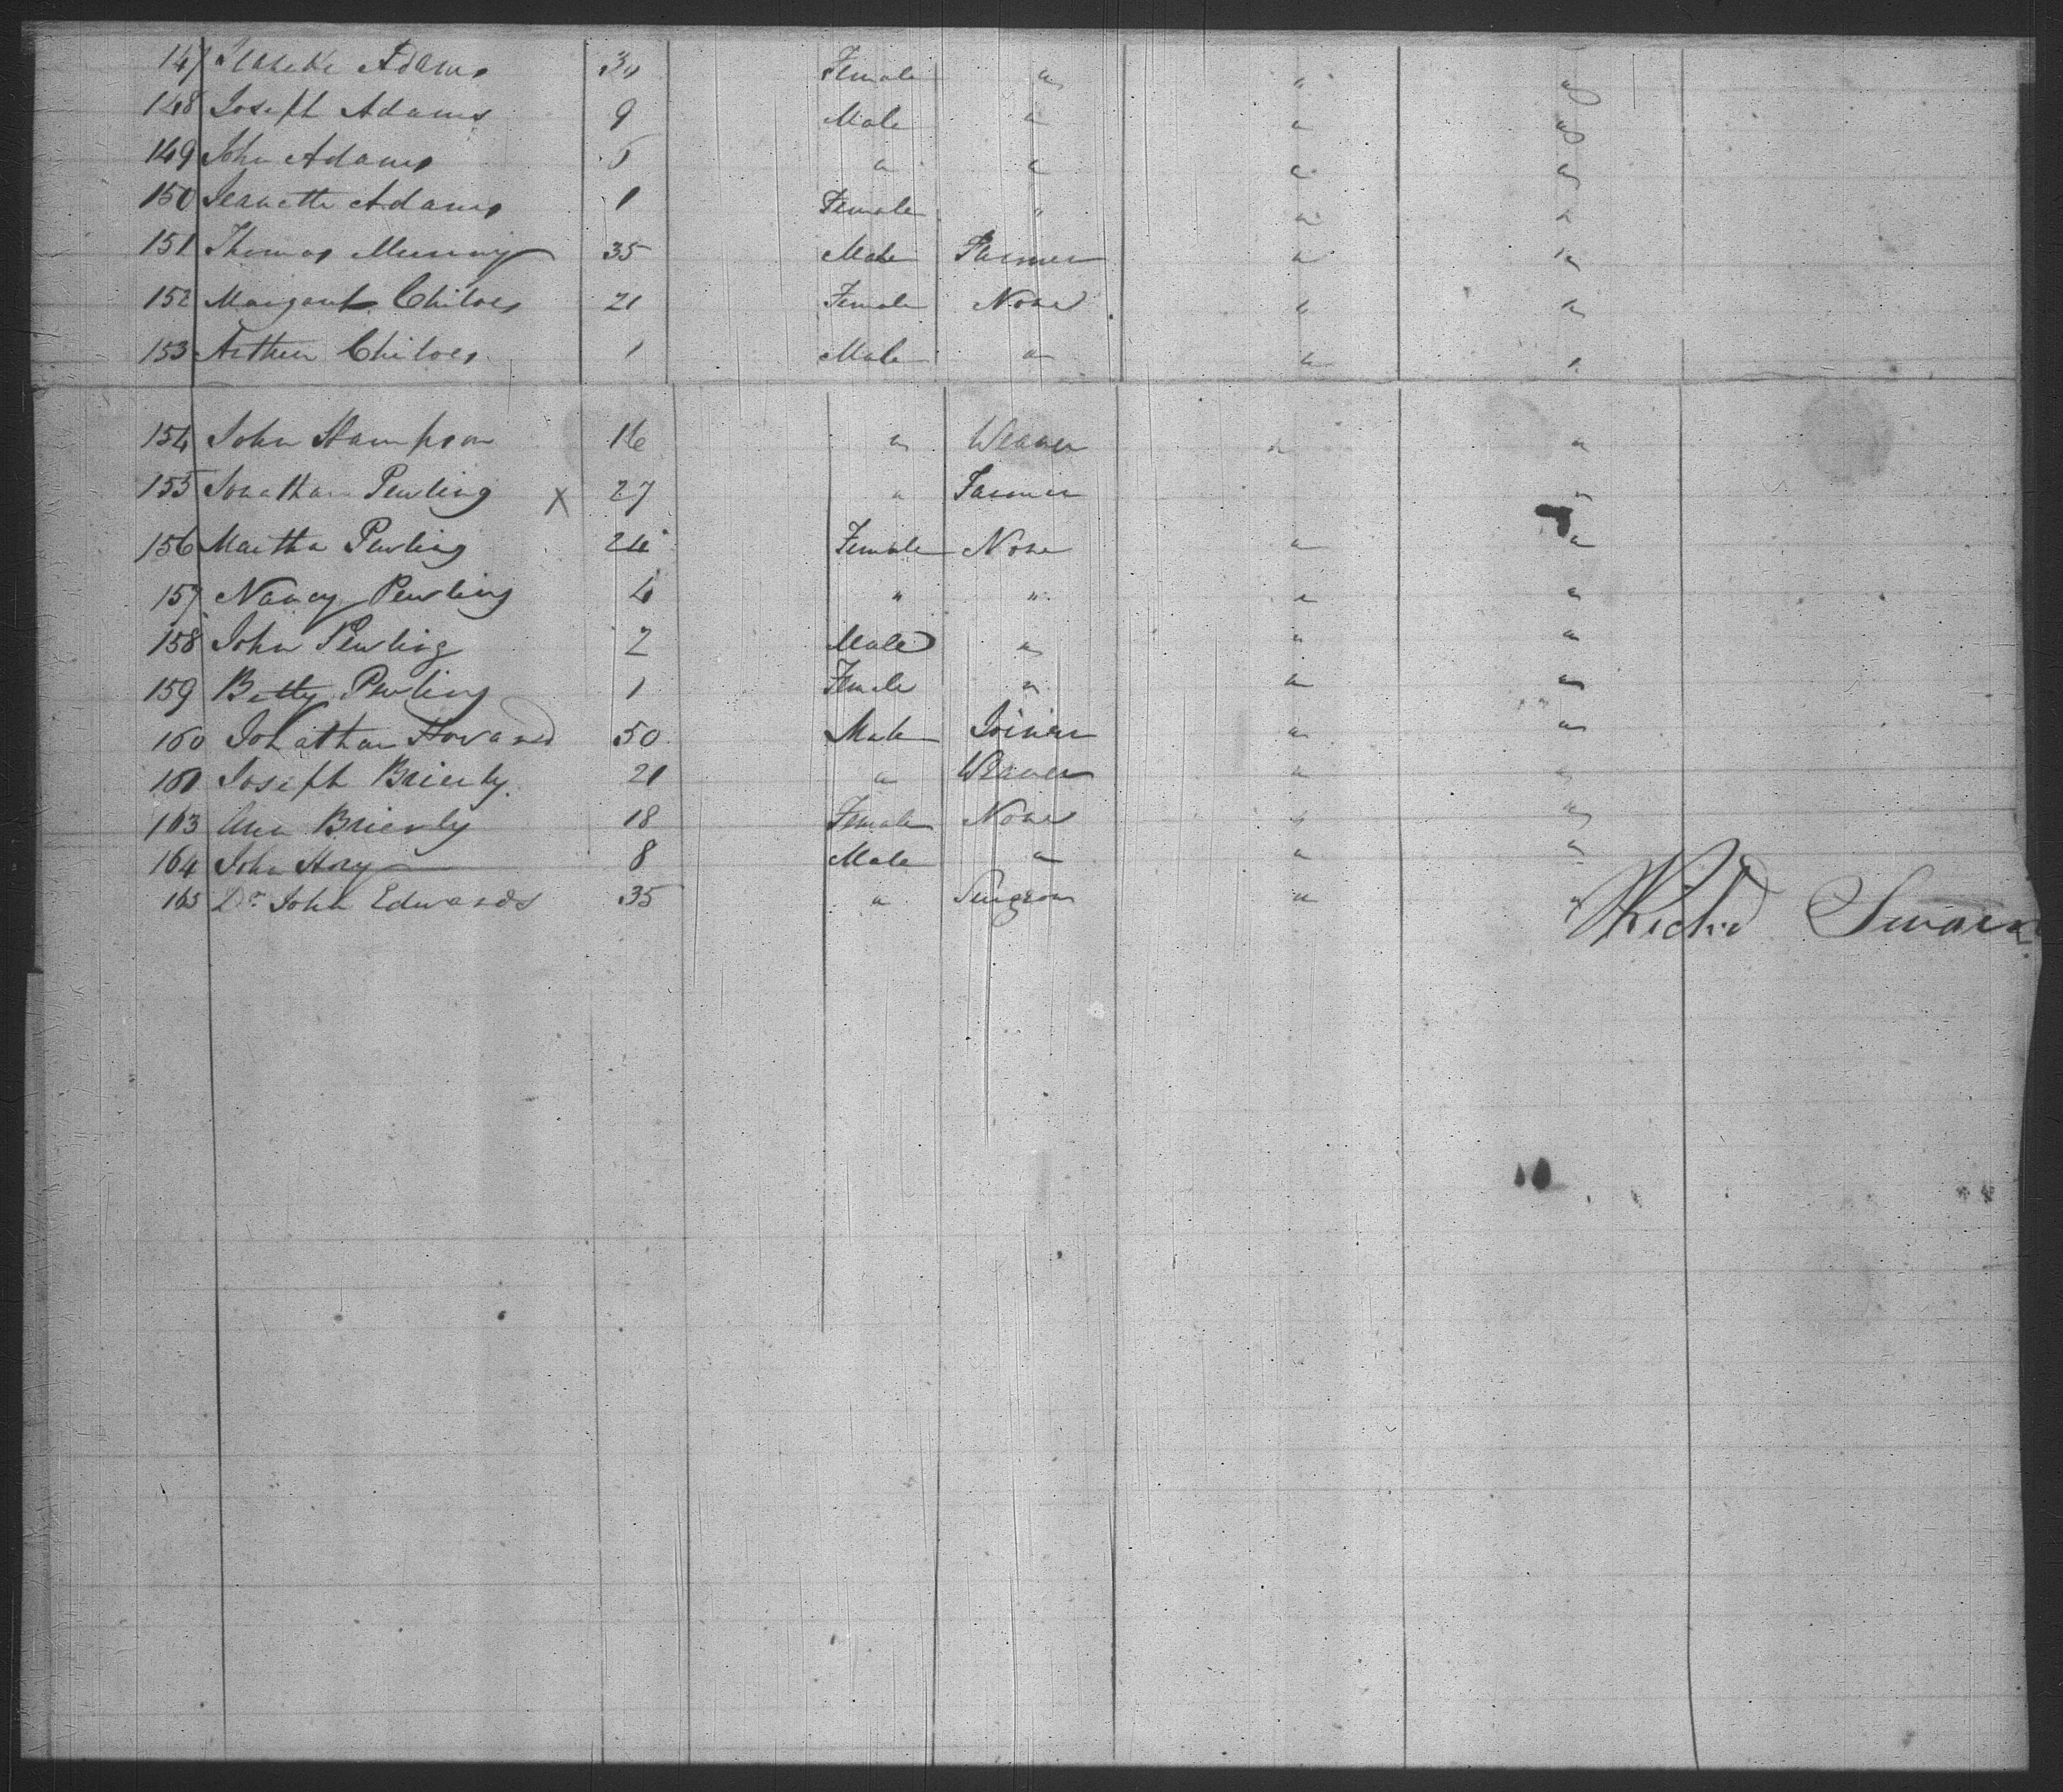 147 Adams 30 Female " " "
148 Joseph Adams 9 Male " " "
149 John Adams 5 " " " "
150 Jeanette Adams 1 Female " " "
151 Thomas Murray 35 Male Farmer " "
152 Margaret Chiloes 21 Female None " "
153 Arthur Chiloes 1 Male " " "
154 John Hampson 16 " Weaver " "
155 Jonathan Pewling X 27 " Farmer "
156 Martha Pewling 24 Female None " "
157 Nancy Pewling 4 " " " "
158 John Pewling 2 Male " " "
159 Betty Pewling 1 Female " " "
160 Johathan Howard 50 Male Joiner " "
161 Joseph Brierly 21 " Weaver " "
163 Ann Brierly 18 Female None " "
164 John 8 Male " " "
165 Dr. John Edwards 35 " Surgeon " "
Richd Swain